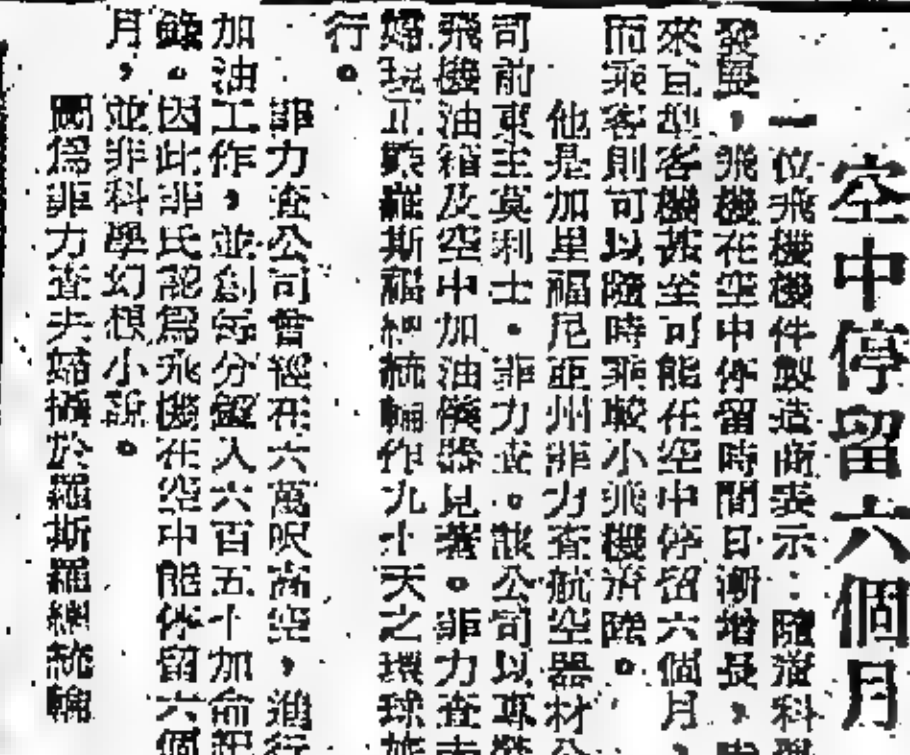 空中停留六個月
一位飛機機件製造商表示:隨着科學
發展,飛機在空中停留時間日漸增長,
來百型客機甚至可能在空中停留六個月,
而乘客則可以隨時乘較小飛機着陸。
他是加里福尼亞州非力查航空器材公
司前東主莫利士・非力查。該公司以專
飛機油箱及空中加油儀器見著。非力查夫
婦現正乘羅斯福總統輪作九十天之環球旅
行。
菲力查公司曾經在六萬呎高空,進行
加油工作,並創每分鐘入六百五十加侖紀
錄。因此非氏認爲飛機在空中能停留六個
月,並非科學幻想小說。
圖爲非力查夫婦攝於羅斯福總統輪